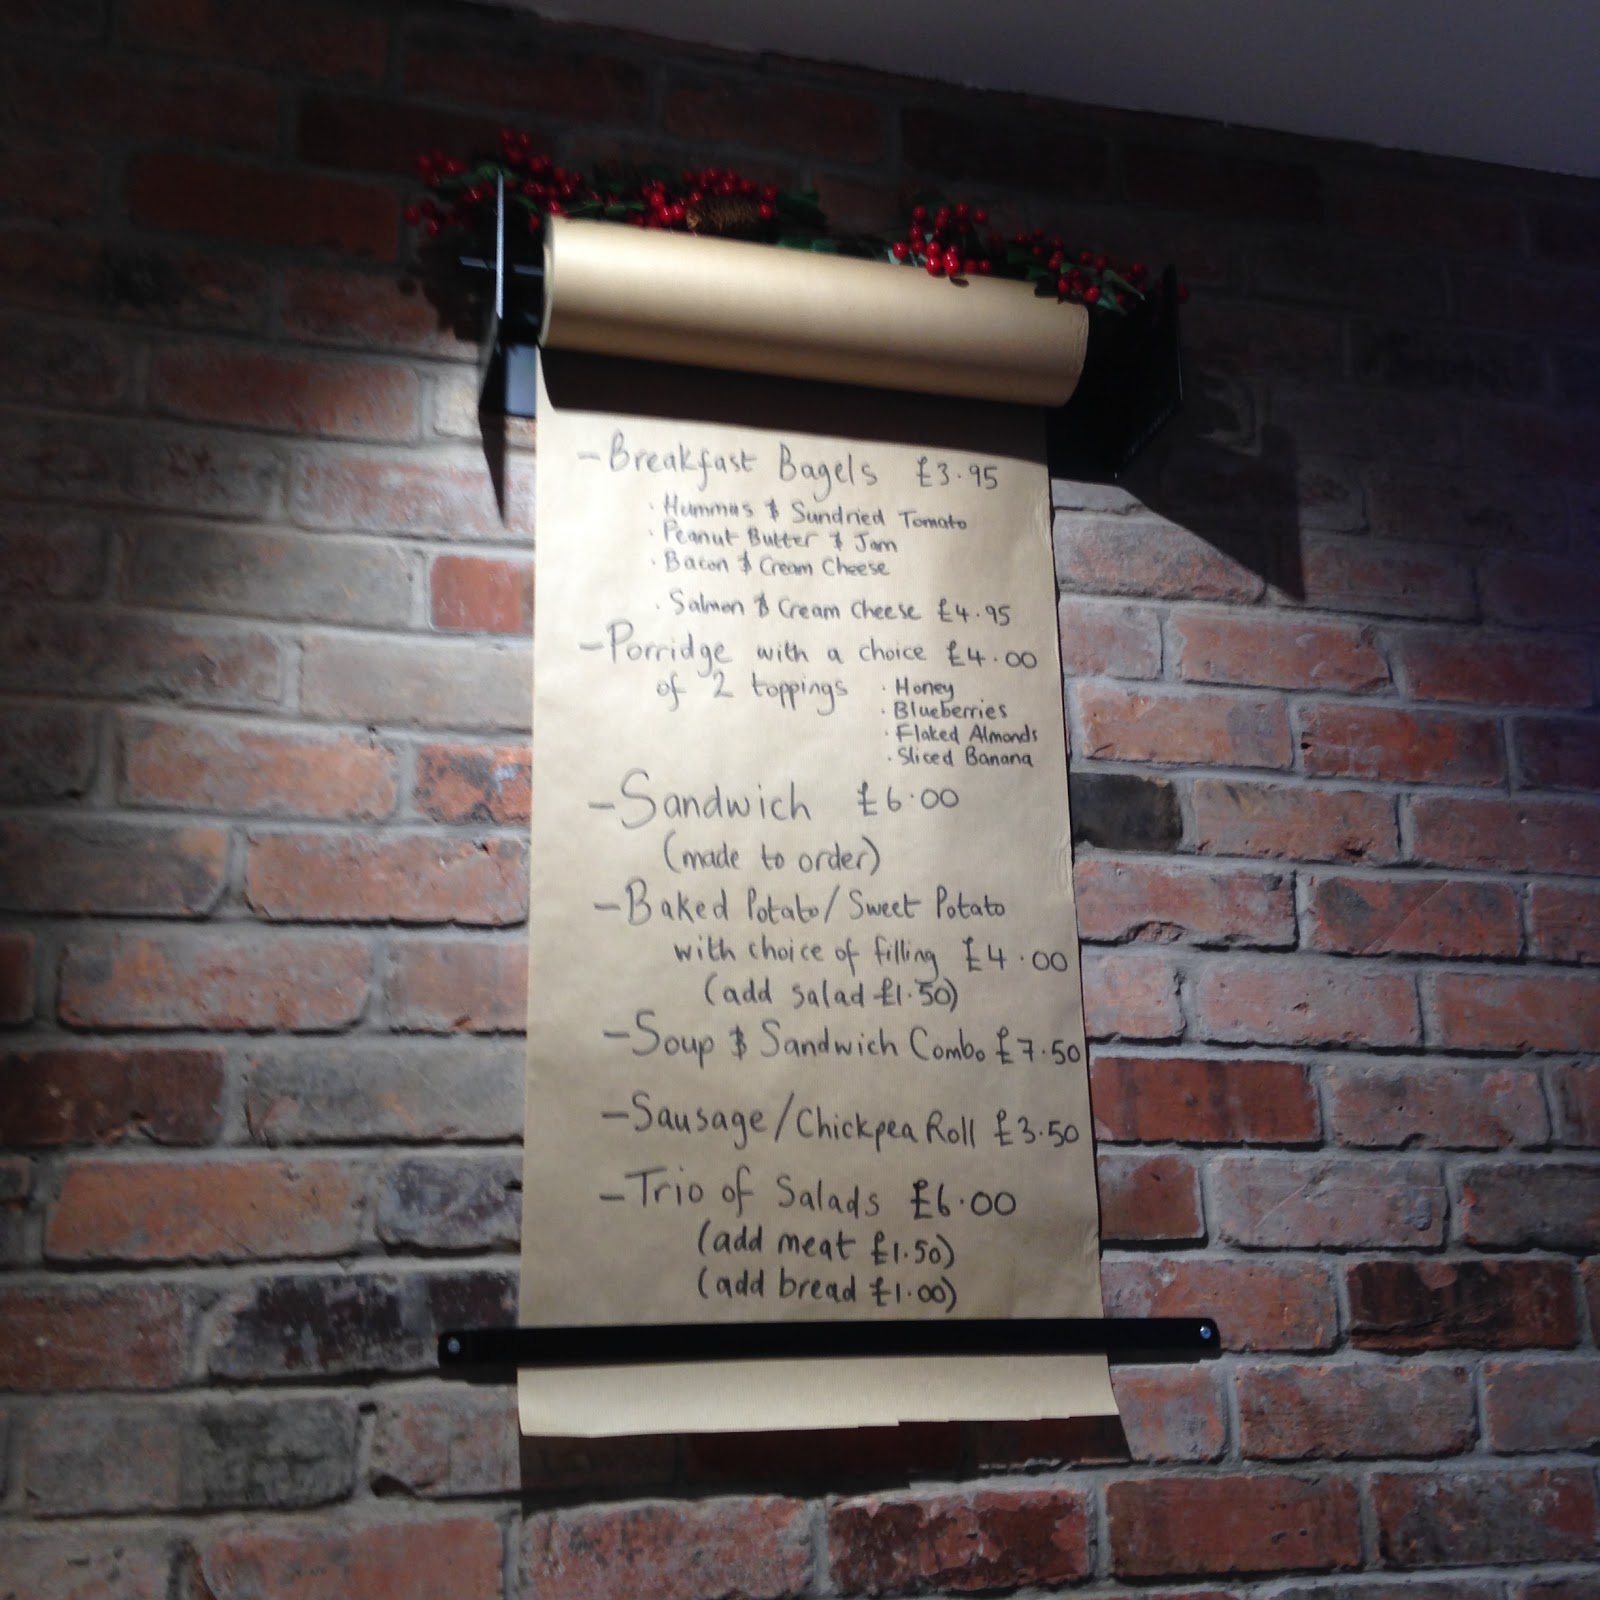 - Breakfast Bagels £3.95
· Hummus & Sundried Tomato
· Peanut Butter & Jam
· Bacon & Cream Cheese
· Salmon & Cream Cheese £4.95
- Porridge with a choice £4.00
of 2 toppings · Honey
· Blueberries
· Flaked Almonds
· Sliced Banana
- Sandwich £6.00
(made to order)
- Baked Potato/Sweet Potato
with choice of filling £4.00
(add salad £1.50)
- Soup & Sandwich Combo £7.50
- Sausage/Chickpea Roll £3.50
- Trio of Salads £6.00
(add meat £1.50)
(add bread £1.00)